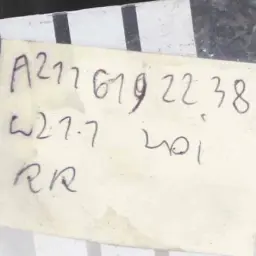 A211 619 22 38
W211 401
RR